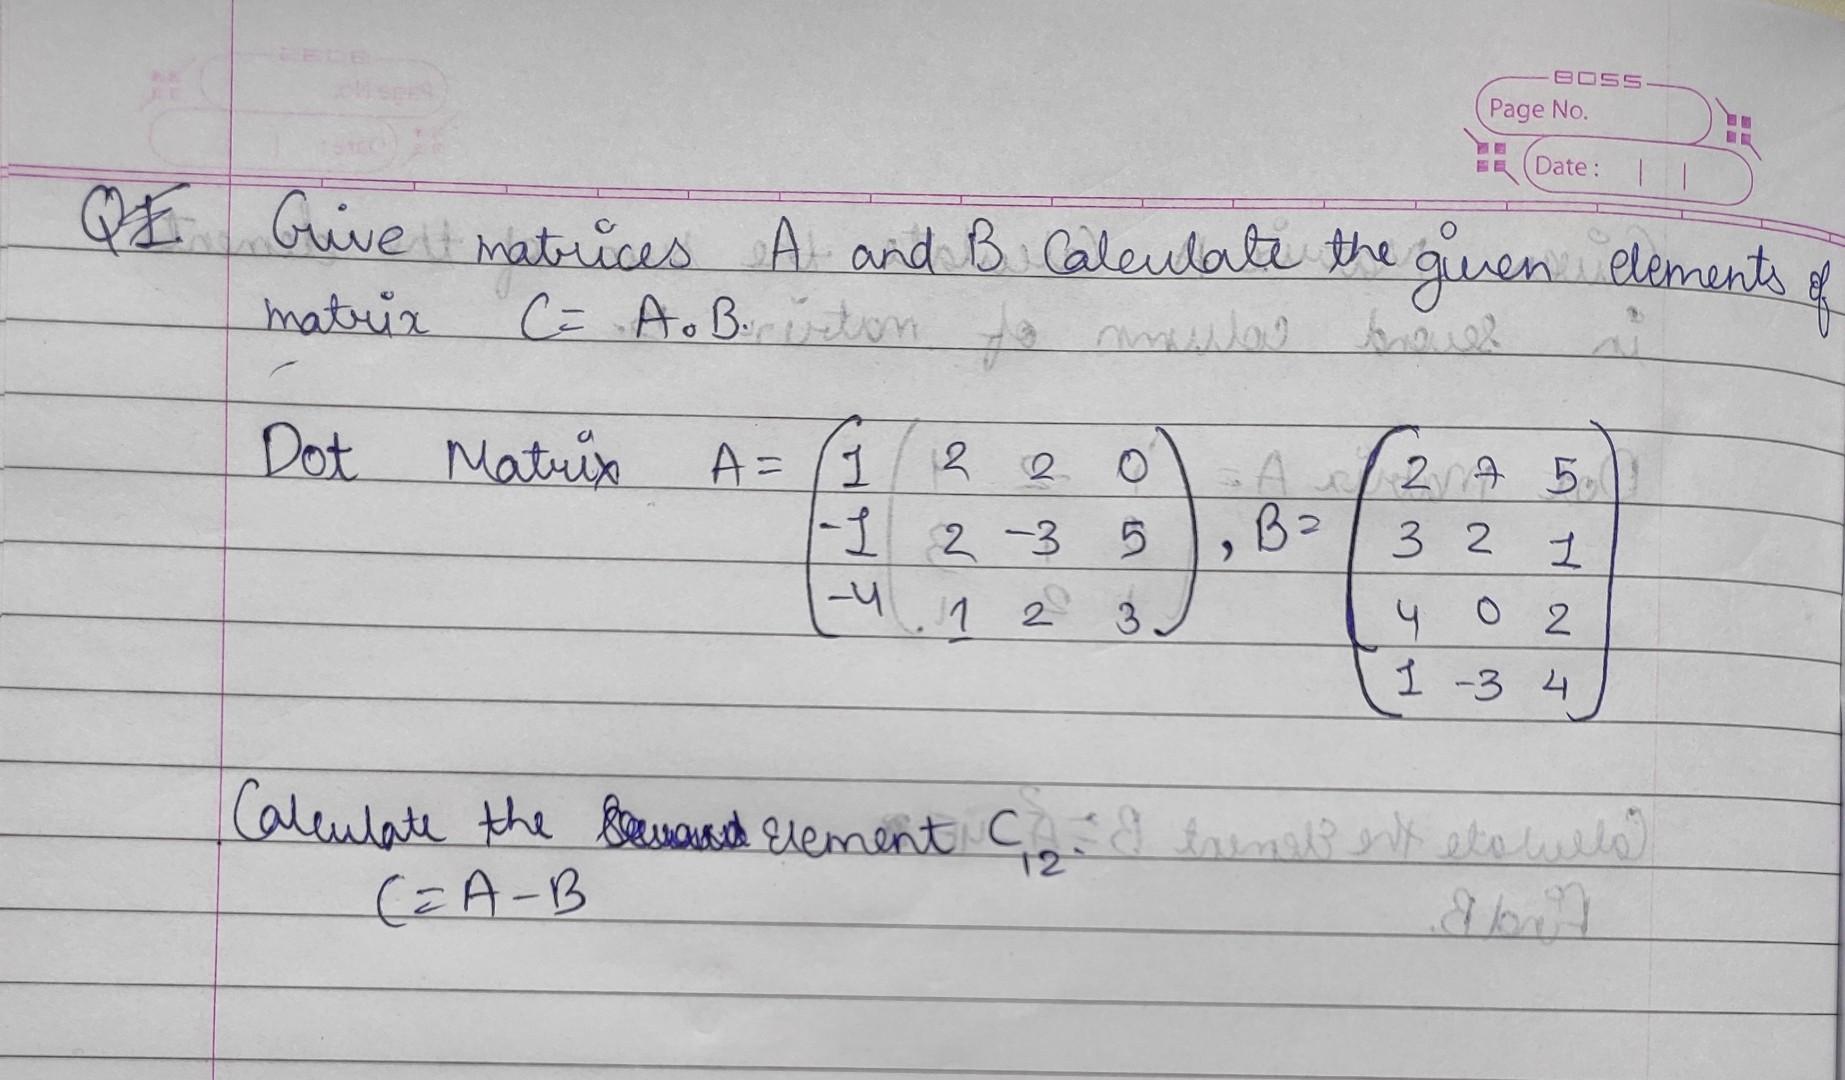 BOSS
Page No.
Date:
Q1 Give matrices A and B. Calculate the given elements of
matrix C = A.B.
Dot Matrix A = (1 2 2 0), B = (2 7 5)
-1 2 -3 5 3 2 1
-4 1 2 3 4 0 2
1 -3 4
Calculate the Element C12.
C = A - B